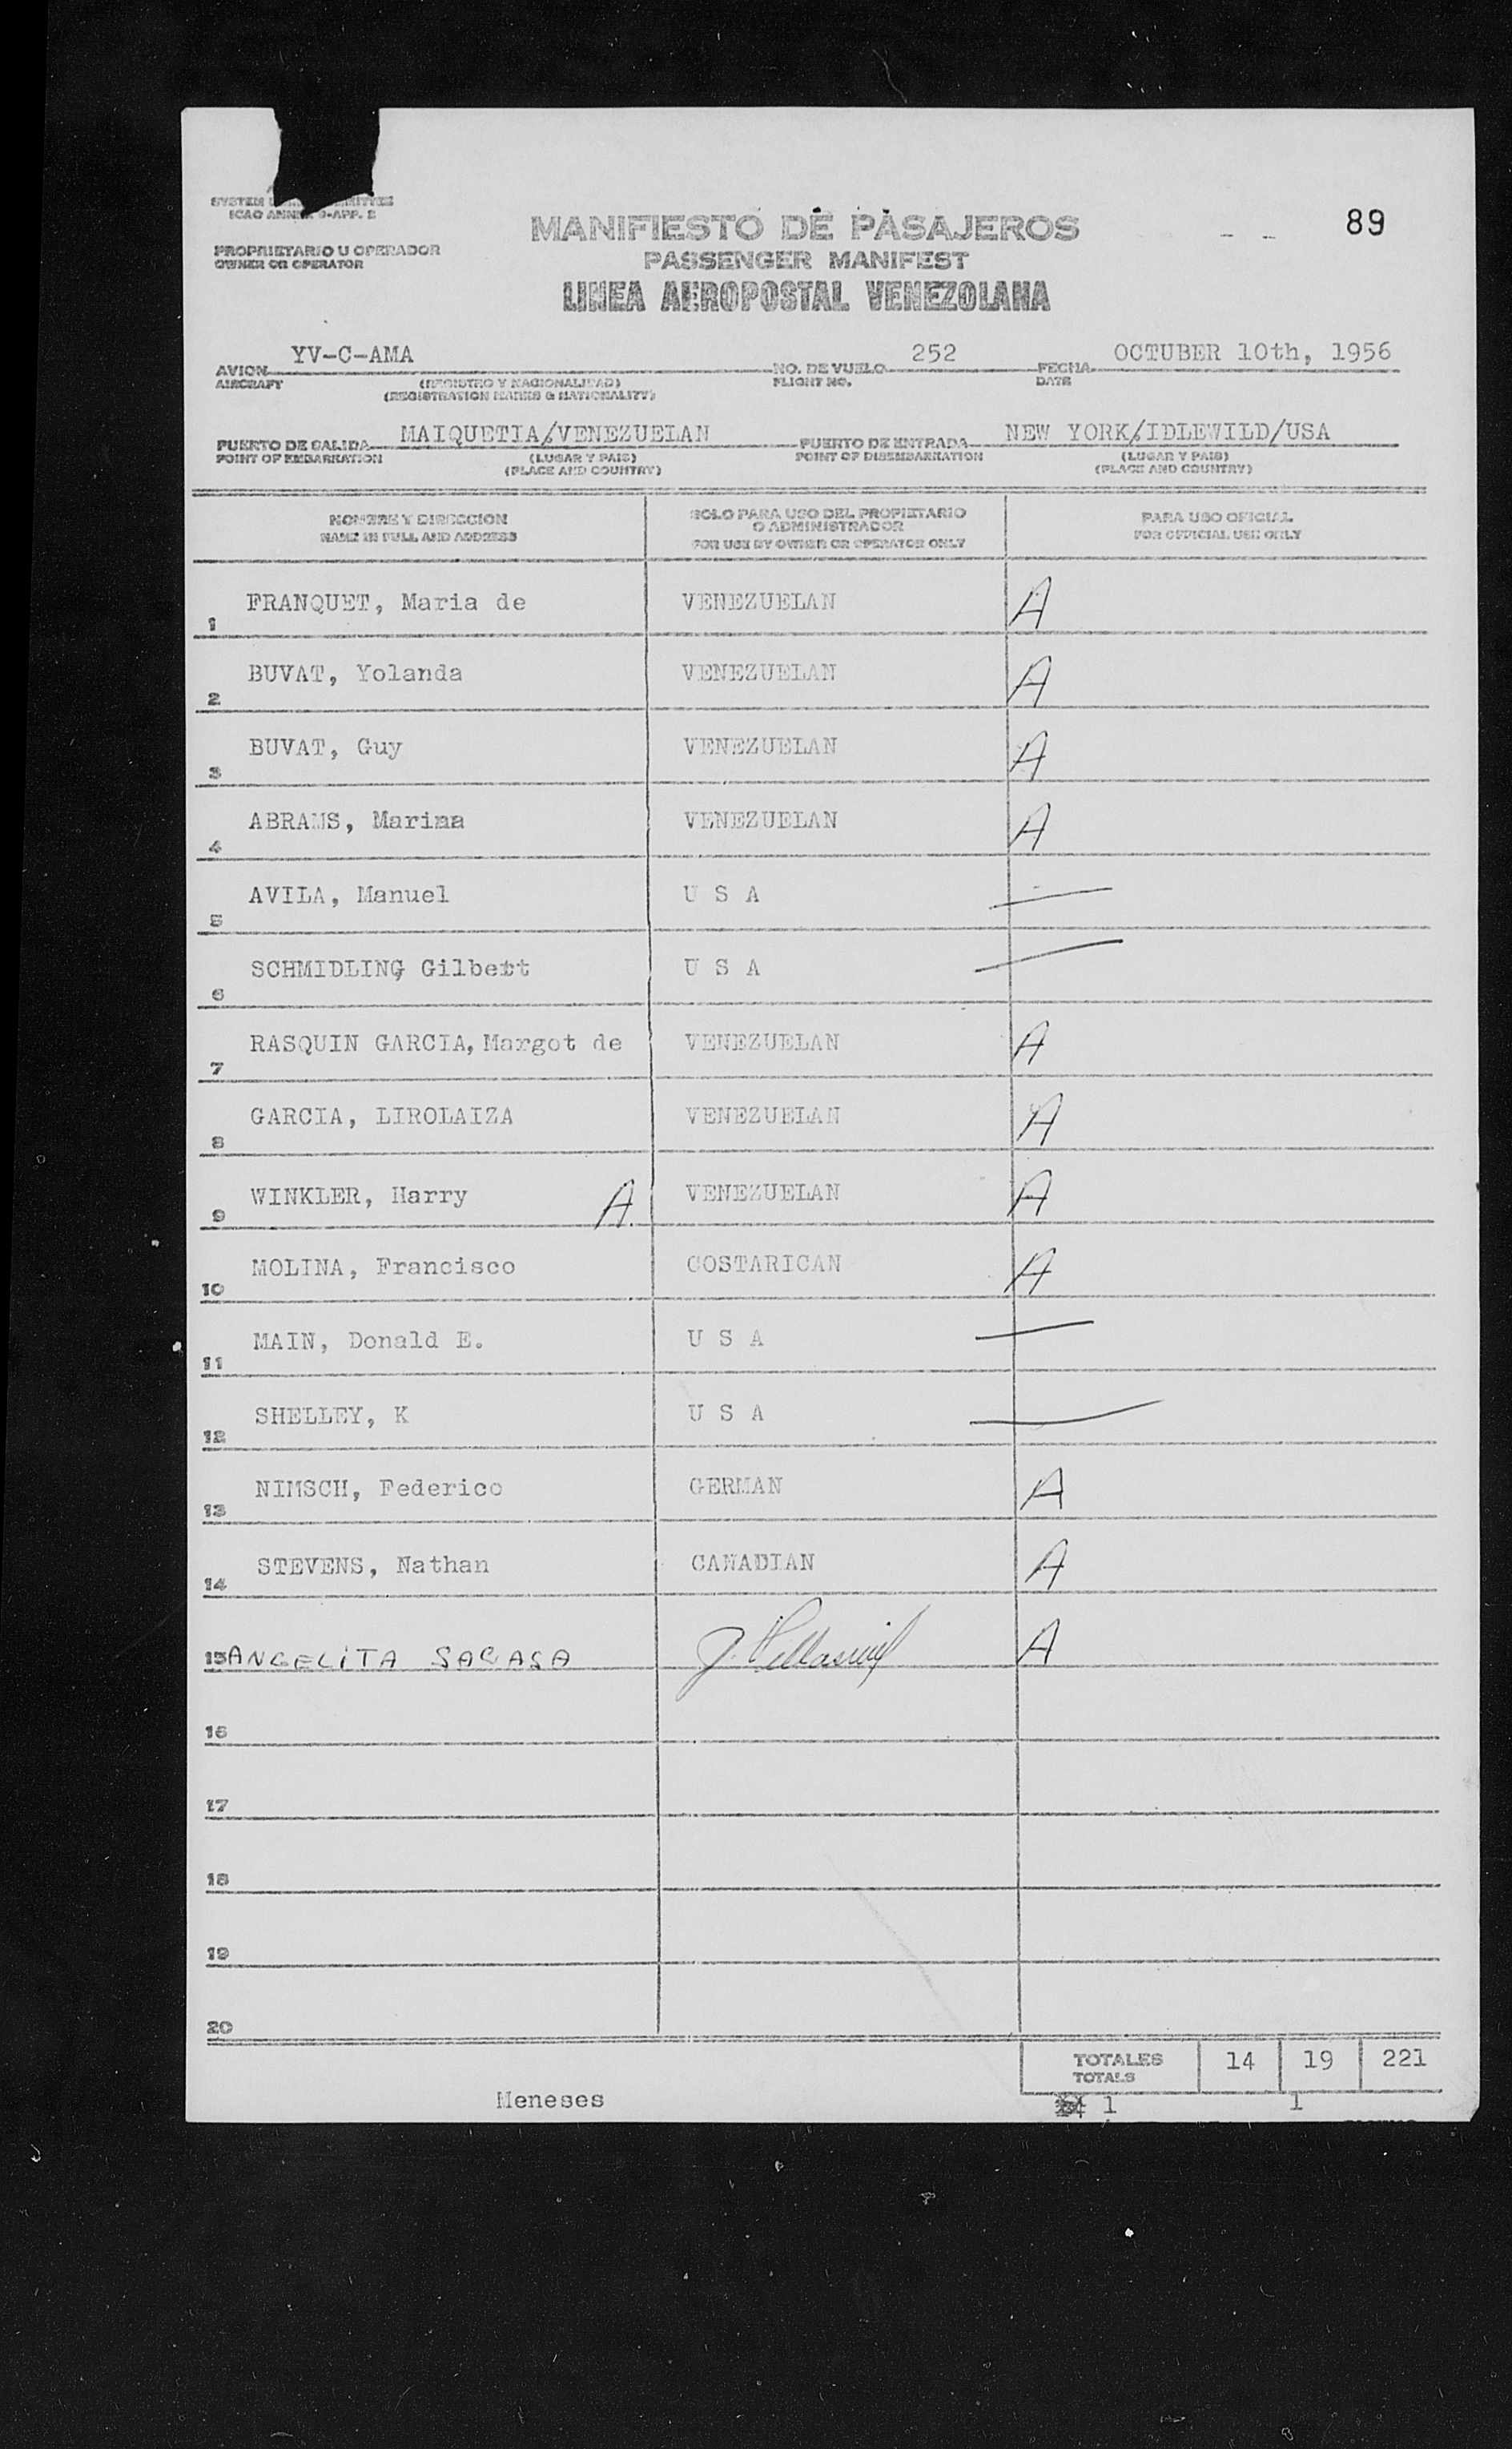 ICAO ANNEX 9-APP. 2
89
MANIFIESTO DE PASAJEROS
PROPRIETARIO U OPERADOR
OWNER OR OPERATOR
PASSENGER MANIFEST
LINEA AEROPOSTAL VENEZOLANA
YV-C-AMA 252 OCTUBER 10th, 1956
AVION NO. DE VUELO FECHA
AIRCRAFT (REGISTRO Y NACIONALIDAD) FLIGHT NO. DATE
(REGISTRATION MARKS & NATIONALITY)
MAIQUETIA/VENEZUELAN NEW YORK/IDLEWILD/USA
PUERTO DE SALIDA PUERTO DE ENTRADA
POINT OF EMBARKATION (LUGAR Y PAIS) POINT OF DISEMBARKATION (LUGAR Y PAIS)
(PLACE AND COUNTRY) (PLACE AND COUNTRY)
NOMBRE Y DIRECCION SOLO PARA USO DEL PROPIETARIO PARA USO OFICIAL
O ADMINISTRADOR
NAME IN FULL AND ADDRESS FOR USE BY OWNER OR OPERATOR ONLY FOR OFFICIAL USE ONLY
1 FRANQUET, Maria de VENEZUELAN A
2 BUVAT, Yolanda VENEZUELAN A
3 BUVAT, Guy VENEZUELAN A
4 ABRAMS, Marina VENEZUELAN A
5 AVILA, Manuel U S A
6 SCHMIDLING Gilbert U S A
7 RASQUIN GARCIA, Margot de VENEZUELAN A
8 GARCIA, LIROLAIZA VENEZUELAN A
9 WINKLER, Harry A VENEZUELAN A
10 MOLINA, Francisco COSTARICAN A
11 MAIN, Donald E. U S A
12 SHELLEY, K U S A
13 NIMSCH, Federico GERMAN A
14 STEVENS, Nathan CANADIAN A
15 ANGELITA SACASA A
16
17
18
19
20
TOTALES 14 19 221
TOTALS
Meneses 1 1